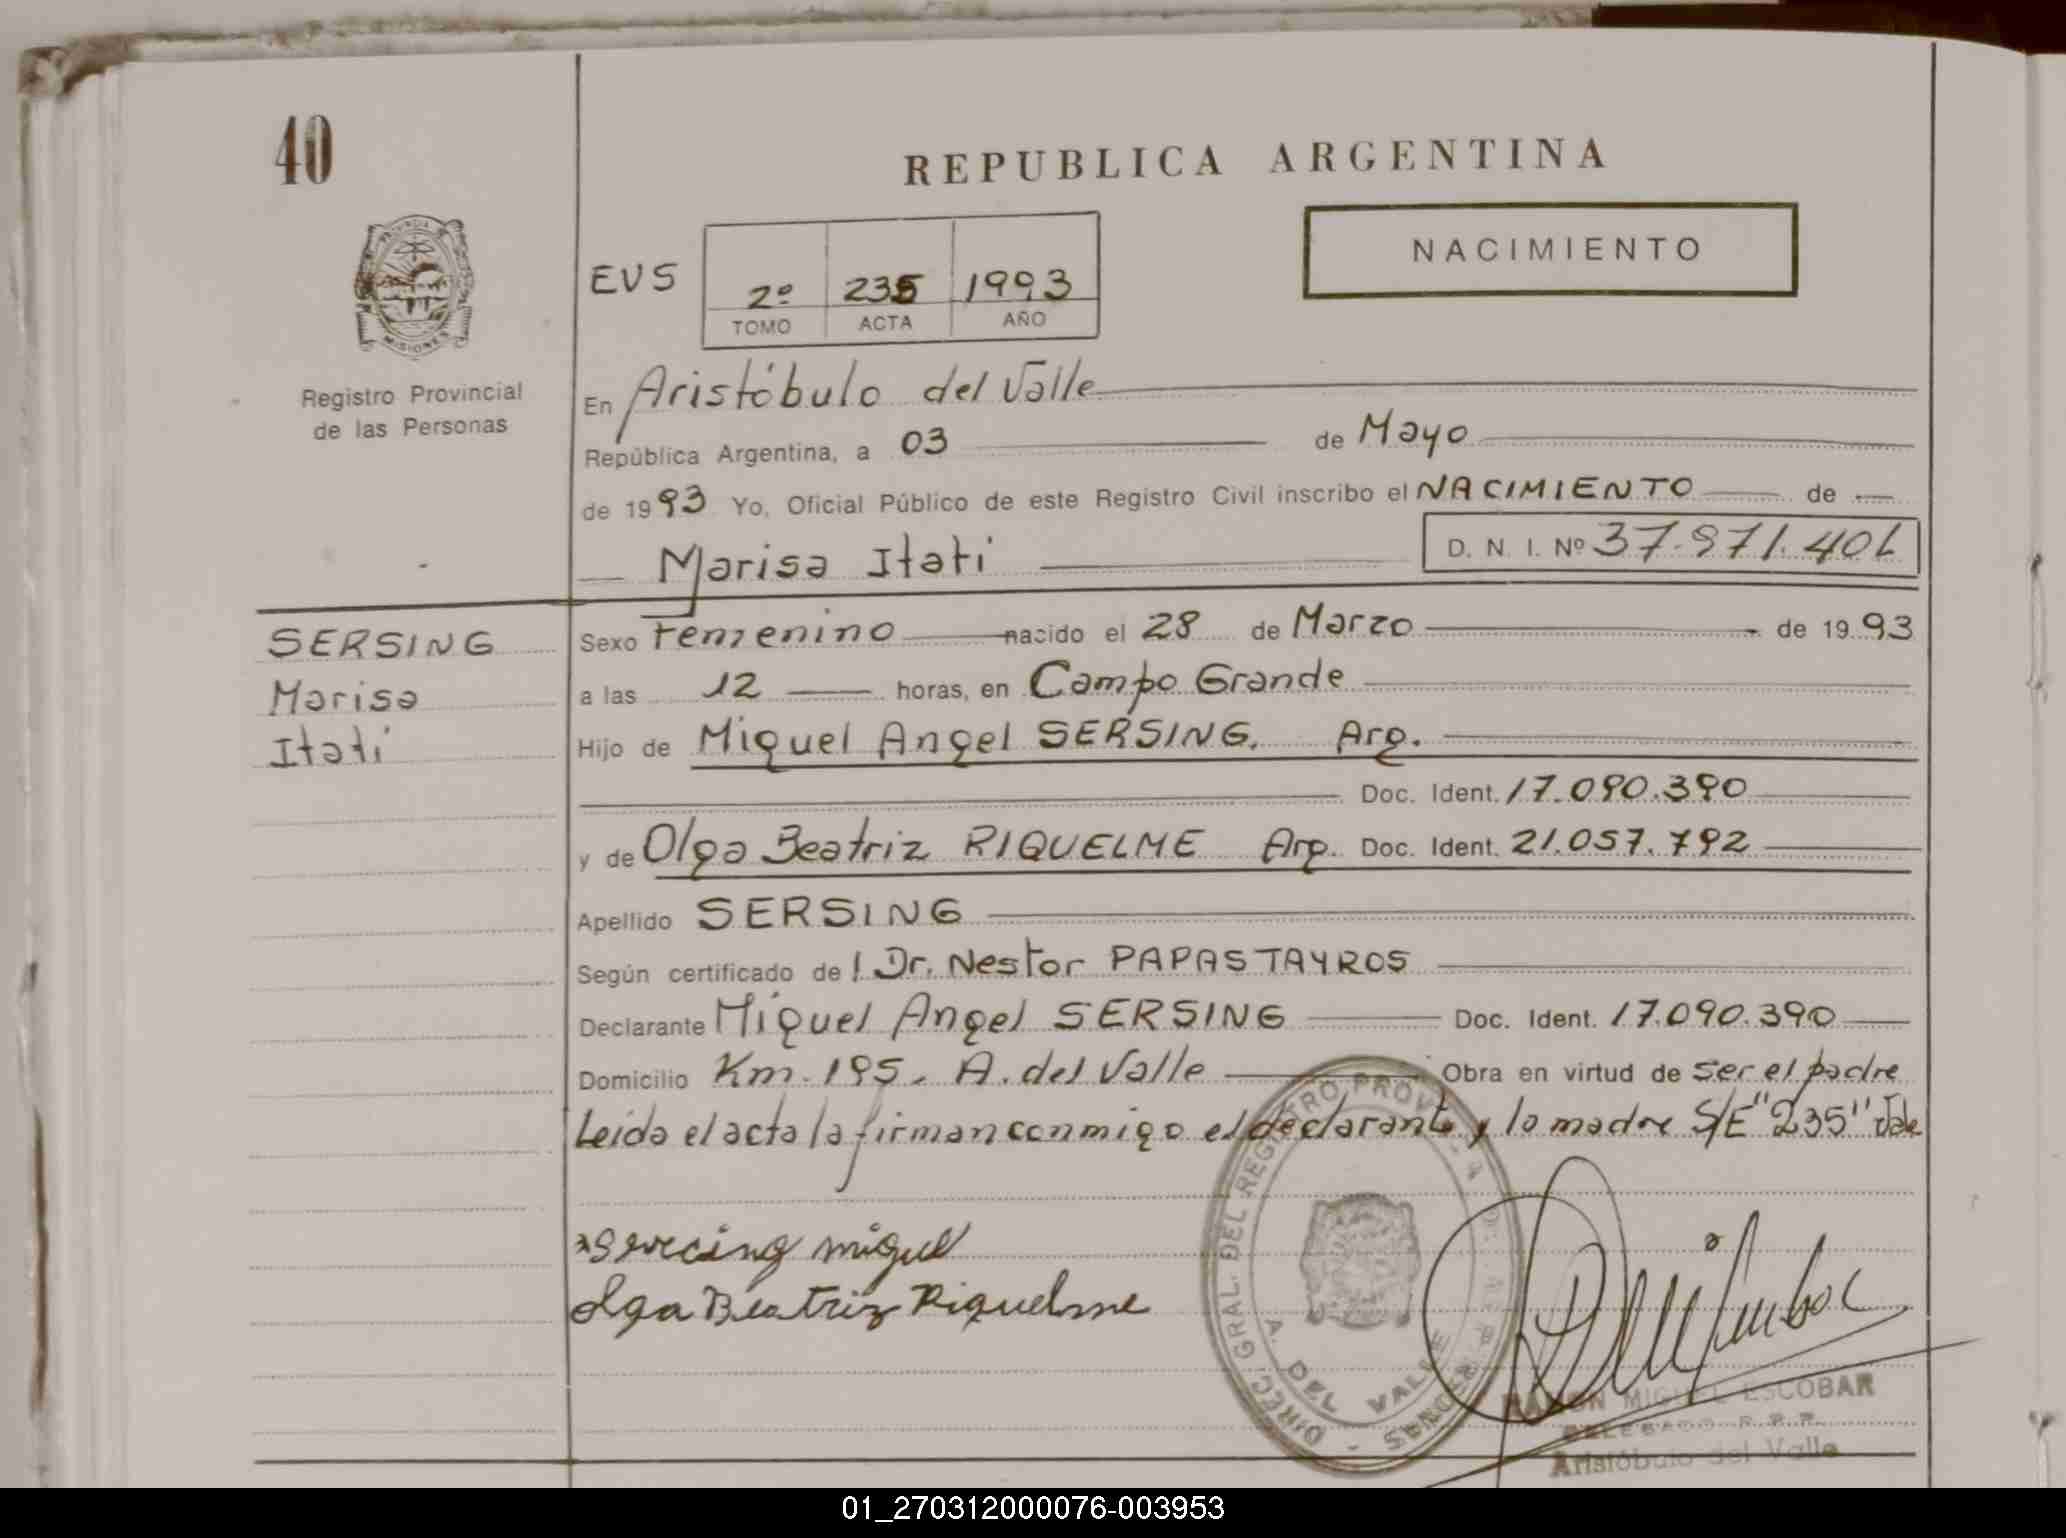 40
REPUBLICA ARGENTINA
PROVINCIA DE
MISIONES
NACIMIENTO
EVS
2º 235 1993
TOMO ACTA AÑO
Registro Provincial
de las Personas
En Aristóbulo del Valle
República Argentina, a 03 de Mayo
de 1993 Yo, Oficial Público de este Registro Civil inscribo el NACIMIENTO de
Marisa Itatí D. N. I. Nº
SERSING
Marisa
Itatí
Sexo Femenino nacido el 28 de Marzo de 1993
a las 12 horas, en Campo Grande
Hijo de Miguel Angel SERSING. Arg.
Doc. Ident. 17.090.390
y de Olga Beatriz RIQUELME Arg. Doc. Ident. 21.057.792
Apellido SERSING
Según certificado del Dr. Nestor PAPASTAYROS
Declarante Miguel Angel SERSING Doc. Ident. 17.090.390
Domicilio Km. 195. A. del Valle Obra en virtud de ser el padre
Leida el acta la firman conmigo el declarante y la madre S/E "235" Vale
sercing miguel
Olga Beatriz Riquelme
DIREC. GRAL. DEL REGISTRO PROV.
A. DEL VALLE
MISIONES
RAMON MIGUEL ESCOBAR
DELEGADO R. P. P.
Aristóbulo del Valle
01_270312000076-003953